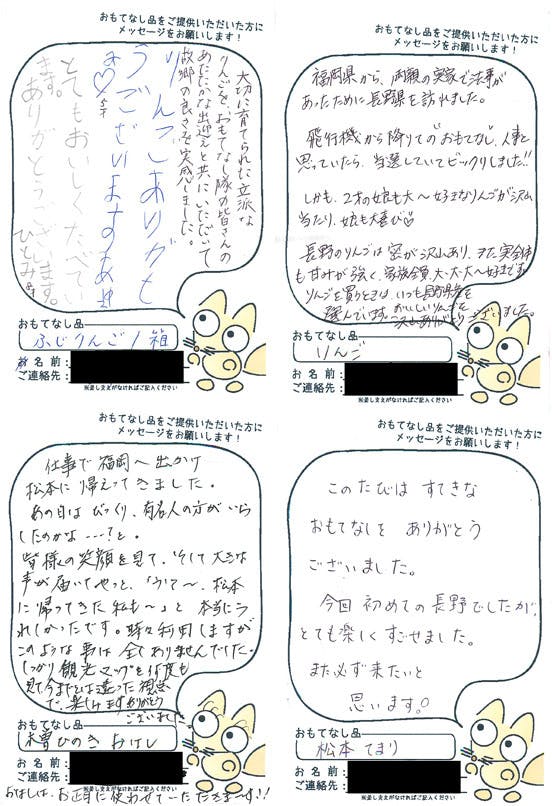 おもてなし品をご提供いただいた方に
メッセージをお願いします！
大切に育てられた立派な
りんごを、おもてなし隊の皆さんの
あたたかな出迎えと共にいただいて
故郷の良さを実感しました。
りんごありがと
うございますあゆ
とてもおいしくたべてい
ます。
ありがとうございます。
ひとみ
おもてなし品
ふじりんご1箱
お名前：
ご連絡先：
※差し支えがなければご記入ください
おもてなし品をご提供いただいた方に
メッセージをお願いします！
福岡県から、両親の実家で法事が
あったために長野県を訪れました。
飛行機から降りての"おもてなし"、人事と
思っていたら、当選していてビックリしました!!
しかも、2才の娘も大〜好きなりんごが沢山
当たり、娘も大喜び♡
長野のりんごは蜜が沢山あり、また、実全体
も甘みが強く、家族全員、大・大・大〜好きです。
りんごを買うときは、いつも長野県産を
選んでいます。おいしいりんごを
ありがとうございました。
おもてなし品
りんご
お名前：
ご連絡先：
※差し支えがなければご記入ください
おもてなし品をご提供いただいた方に
メッセージをお願いします！
仕事で福岡へ出かけ
松本に帰えってきました。
あの日はびっくり、有名人の方がいら
したのかな…？と。
皆様の笑顔を見て、そして大きな
声が届いてやっと、「うわ〜、松本
に帰ってきた私も〜」と本当にう
れしかったです。時々利用しますが
このような事は全くありませんでした。
しっかり観光マップを何度も
見て今までとは違った視点
で、楽しみます ありがとう
ございました。
おもてなし品
木曽ひのきおはし
お名前：
ご連絡先：
おはしは、お正月に使わせていただきま〜す!!
おもてなし品をご提供いただいた方に
メッセージをお願いします！
このたびは すてきな
おもてなしを ありがとう
ございました。
今回 初めての長野でしたが、
とても楽しくすごせました。
また必ず来たいと
思います。
おもてなし品
松本てまり
お名前：
ご連絡先：
※差し支えがなければご記入ください